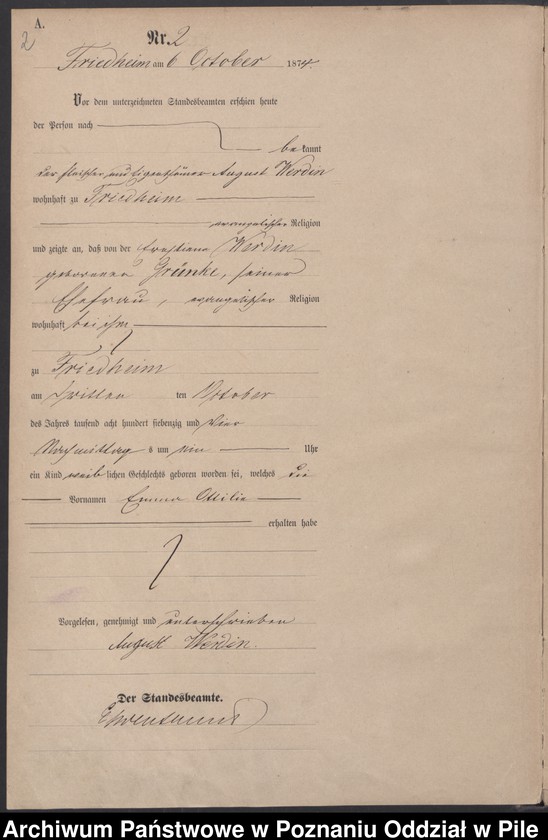 A.
2
Nr. 2
Friedheim am 6 October 1874.
Vor dem unterzeichneten Standesbeamten erschien heute
der Person nach
bekannt
der Fleischer und Eigenthümer August Werdin
wohnhaft zu Friedheim
evangelischer Religion
und zeigte an, daß von der Werdin
geborenen Grünke, seiner
Ehefrau, evangelischer Religion
wohnhaft bei ihm
zu Friedheim
am dritten ten October
des Jahres tausend acht hundert siebenzig und vier
Nachmittag s um ein Uhr
ein Kind weiblichen Geschlechts geboren worden sei, welches die
Vornamen Emma Ottilie
erhalten habe
Vorgelesen, genehmigt und unterschrieben
August Werdin.
Der Standesbeamte.
Archiwum Państwowe w Poznaniu Oddział w Pile